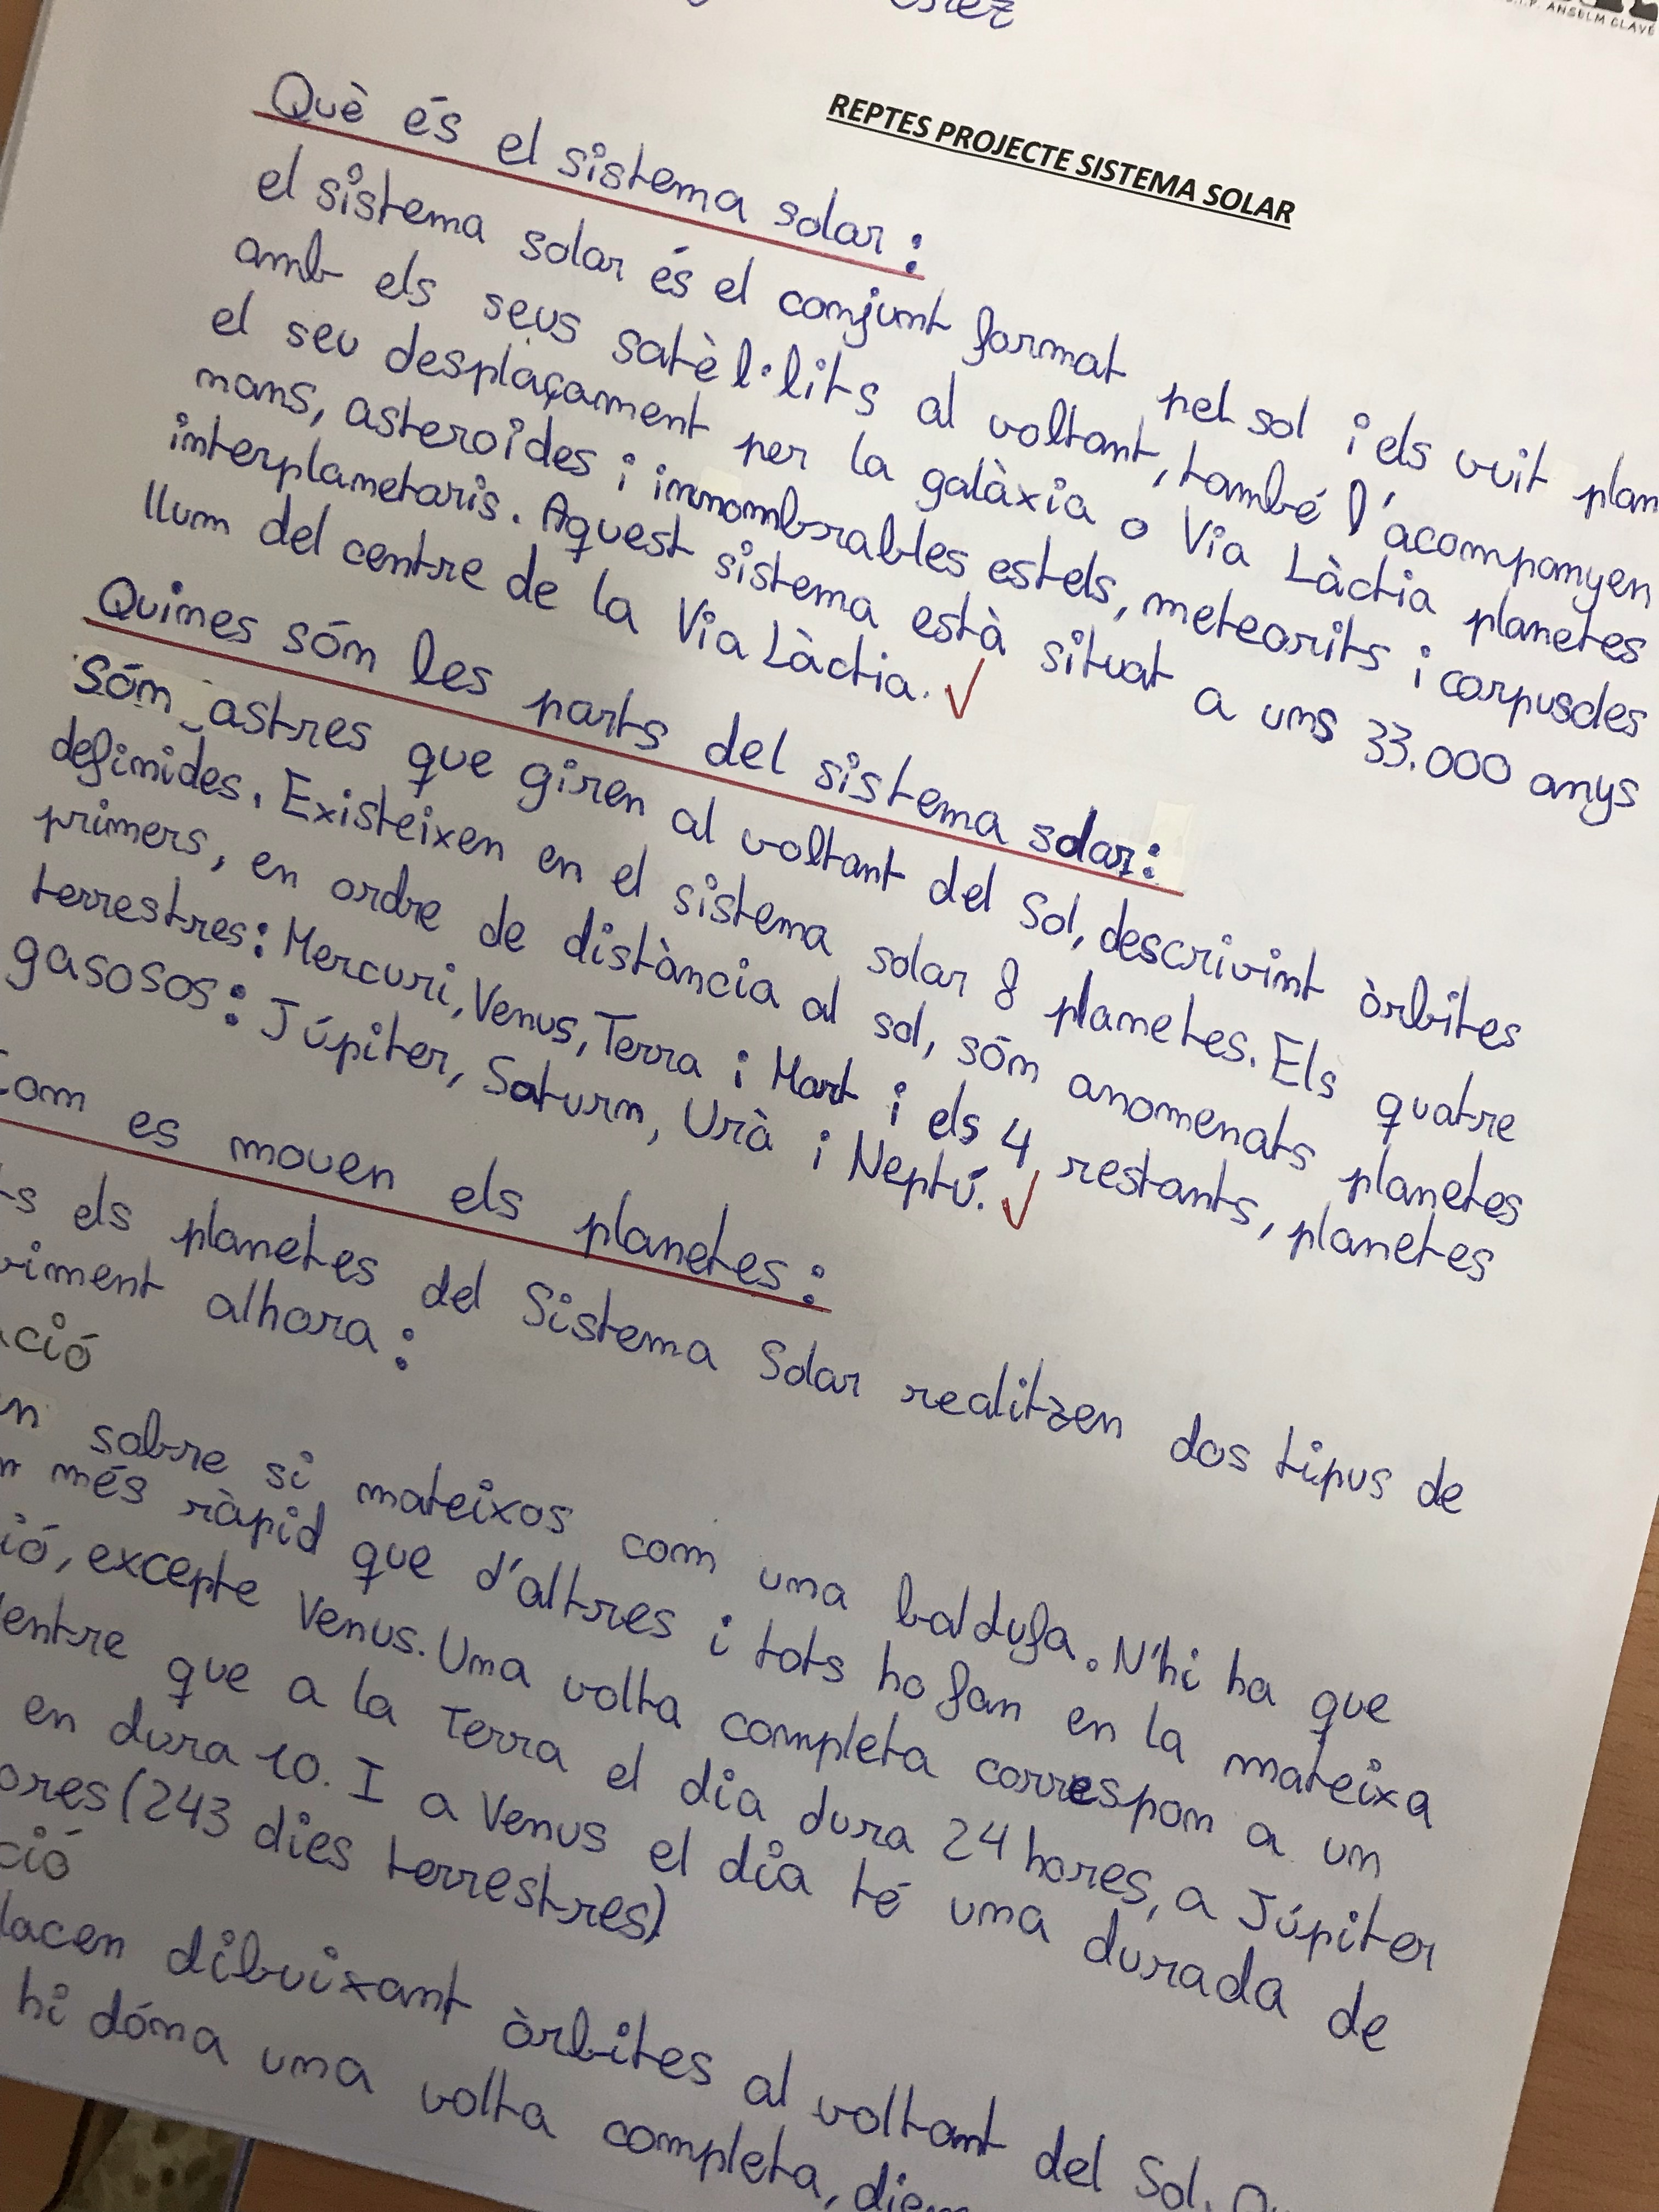 C.I.P. ANSELM CLAVÉ
REPTES PROJECTE SISTEMA SOLAR
Què és el sistema solar:
el sistema solar és el conjunt format pel sol i els vuit plan
amb els seus satèl·lits al voltant, també l'acompanyen
el seu desplaçament per la galàxia o Via Làctia planetes
nans, asteroïdes i innombrables estels, meteorits i corpuscles
interplanetaris. Aquest sistema està situat a uns 33.000 anys
llum del centre de la Via Làctia.
Quines són les parts del sistema solar:
Són astres que giren al voltant del Sol, descrivint òrbites
definides. Existeixen en el sistema solar 8 planetes. Els quatre
primers, en ordre de distància al sol, són anomenats planetes
terrestres: Mercuri, Venus, Terra i Mart i els 4 restants, planetes
gasosos: Júpiter, Saturn, Urà i Neptú.
Com es mouen els planetes:
ts els planetes del Sistema Solar realitzen dos tipus de
viment alhora:
ació
en sobre si mateixos com una baldufa. N'hi ha que
n més ràpid que d'altres i tots ho fan en la mateixa
ió, excepte Venus. Una volta completa correspon a un
entre que a la Terra el dia dura 24 hores, a Júpiter
en dura 10. I a Venus el dia té una durada de
ores (243 dies terrestres)
ció
lacen dibuixant òrbites al voltant del Sol.
hi dóna una volta completa, diem